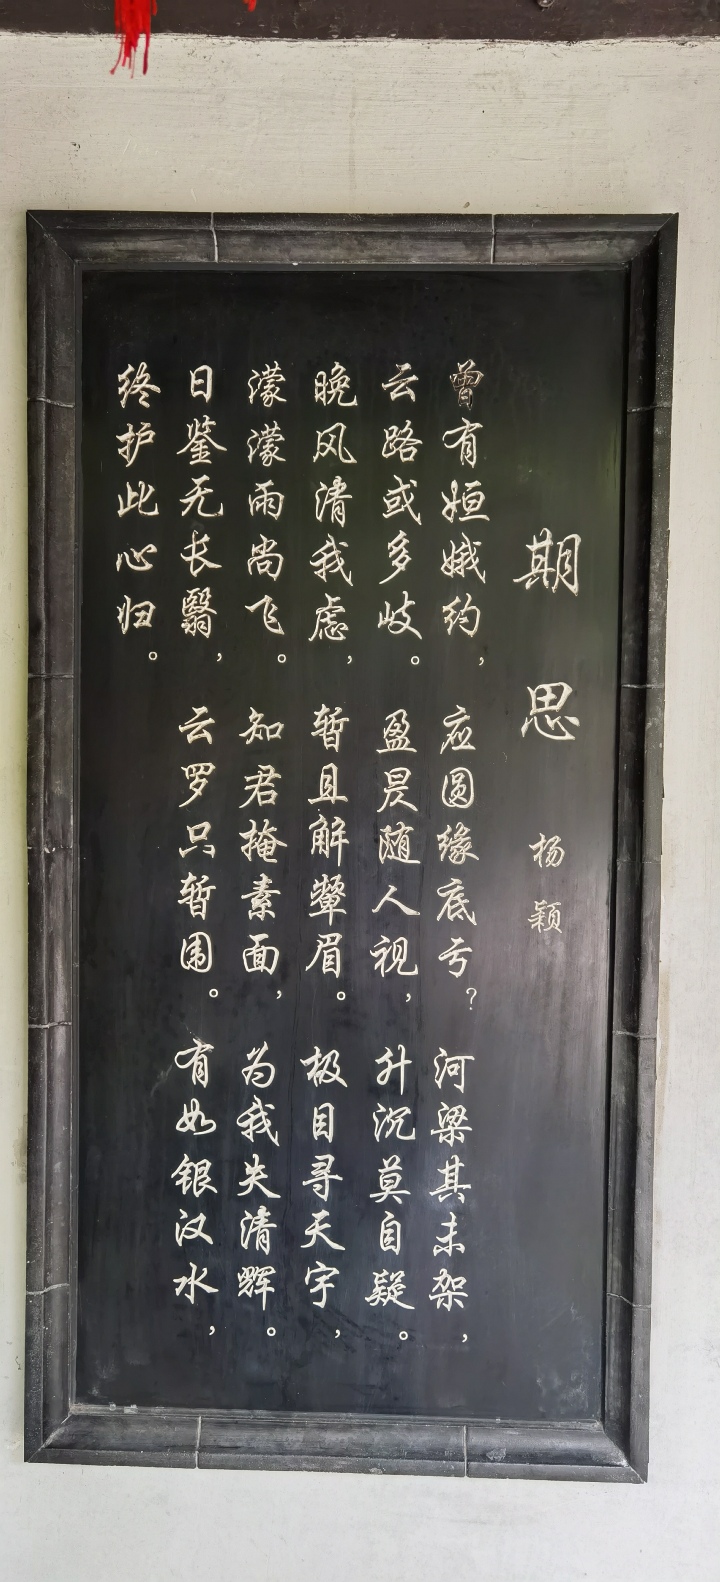 期思
杨颖
曾有姮娥约，应圆缘底亏？河梁其未架，
云路或多歧。盈昃随人视，升沉莫自疑。
晚风清我虑，暂且解颦眉。极目寻天宇，
濛濛雨尚飞。知君掩素面，为我失清辉。
日鉴无长翳，云罗只暂围。有如银汉水，
终护此心归。